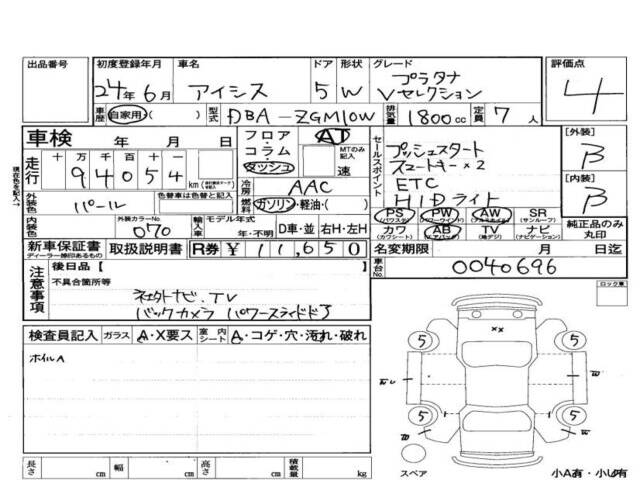 出品番号 初度登録年月 車名 ドア 形状 グレード 評価点
24年6月 アイシス 5 W プラタナ Vセレクション 4
車歴 自家用・( ) 型式 DBA-ZGM10W 排気量 1800cc 定員 7人
車検 年 月 日
フロア・コラム・ダッシュ AT MTのみ記入 速
セールスポイント
プッシュスタート
スマートキー×2
ETC
HIDライト
[外装] B
[内装] B
現在色を記入→
走行 十 万 千 百 十 一
94054 km
冷房 AAC
燃料 ガソリン・軽油・( )
外装色 パール 色替車は色替と記入
内装色 外装カラーNo. 070 輸入車 モデル年式 年・不明 D車・並 右H・左H
PS (パワステ) PW (パワーウィンド) AW (アルミホイル) SR (サンルーフ)
カワ (カワシート) AB (エアバック) TV (地デジ) ナビ (ナビゲーション)
純正品のみ丸印
新車保証書 ディーラー捺印あるもの 取扱説明書 R券 ¥11,650
名変期限 月 日迄
車台No. 0040696
注意事項
後日品 [ ]
不具合箇所等
バックカメラ パワースライドドア
ロック車
検査員記入 ガラス A・X要ス 室内シート A・コゲ・穴・汚れ・破れ
ホイルA
5 5
××
W
5 5
スペア
小A有・小U有
長さ cm 幅 cm 高さ cm 積載量 kg